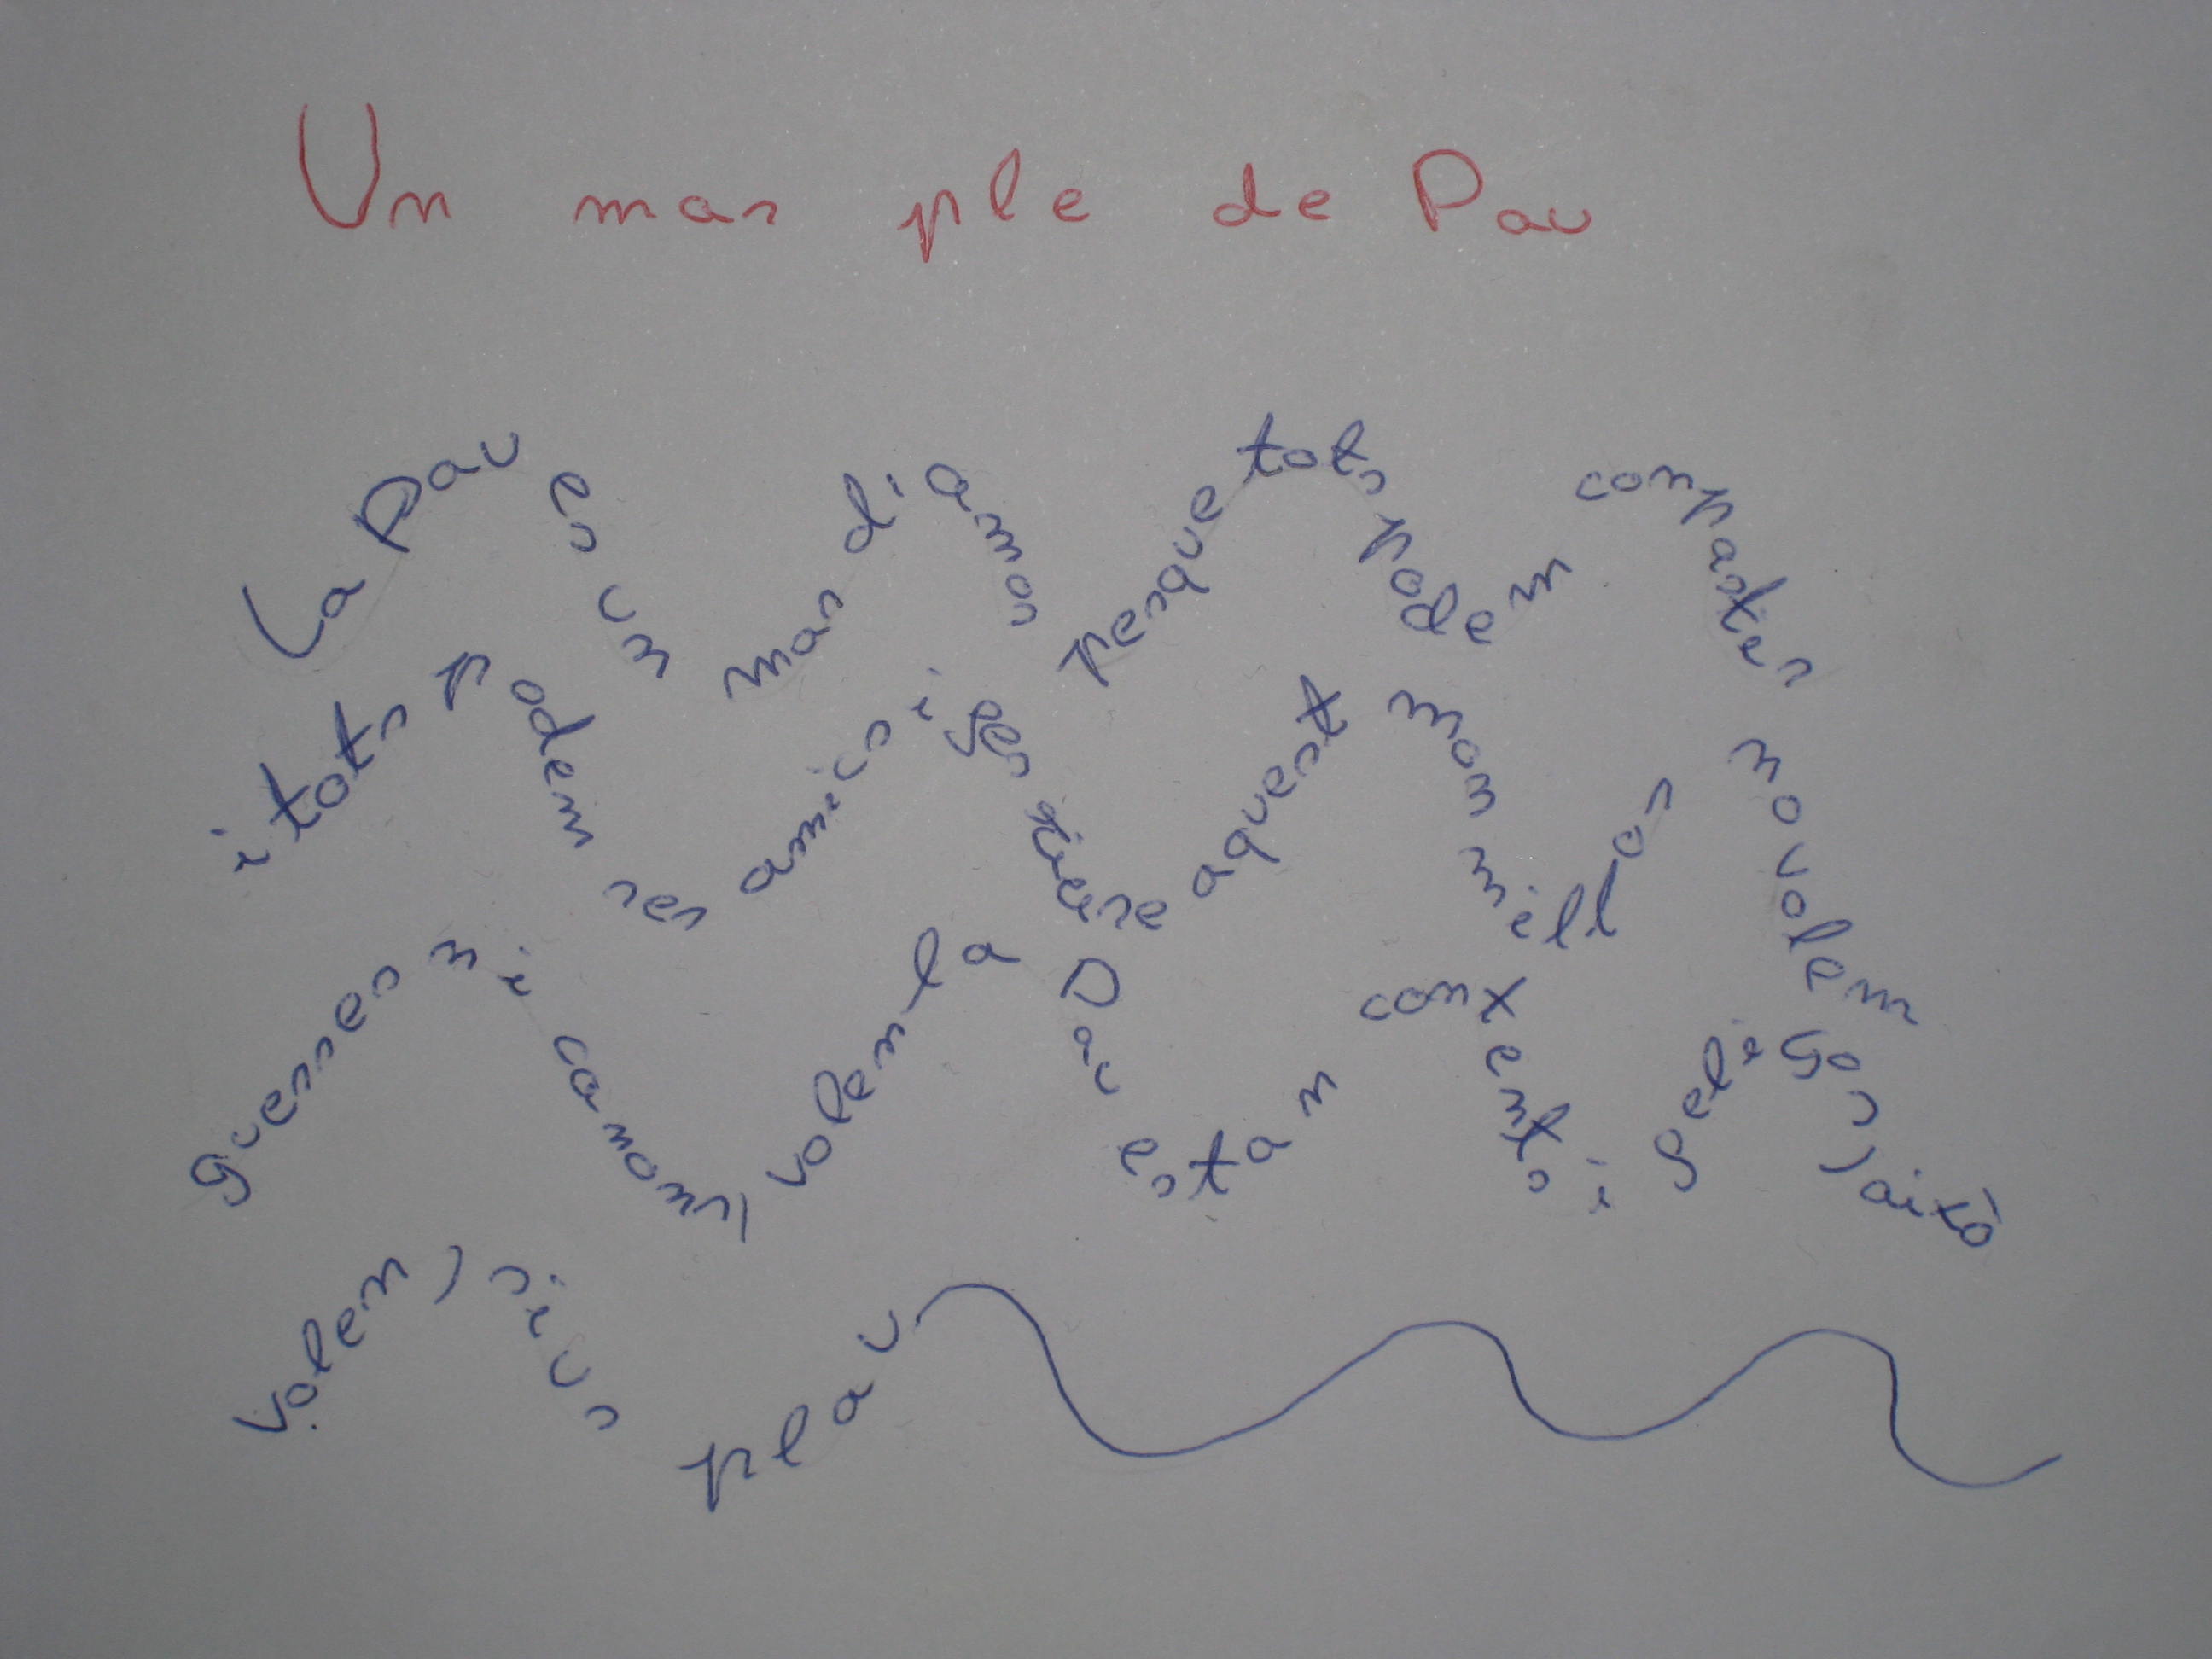 Un mar ple de Pau
La Pau es un mar d'amor perque tots podem conparter
i tots podem ser amics i fer aquest mon millor no volem
guerres ni canons, volem la Pau estar contents i feliços, això
volem, sius plau